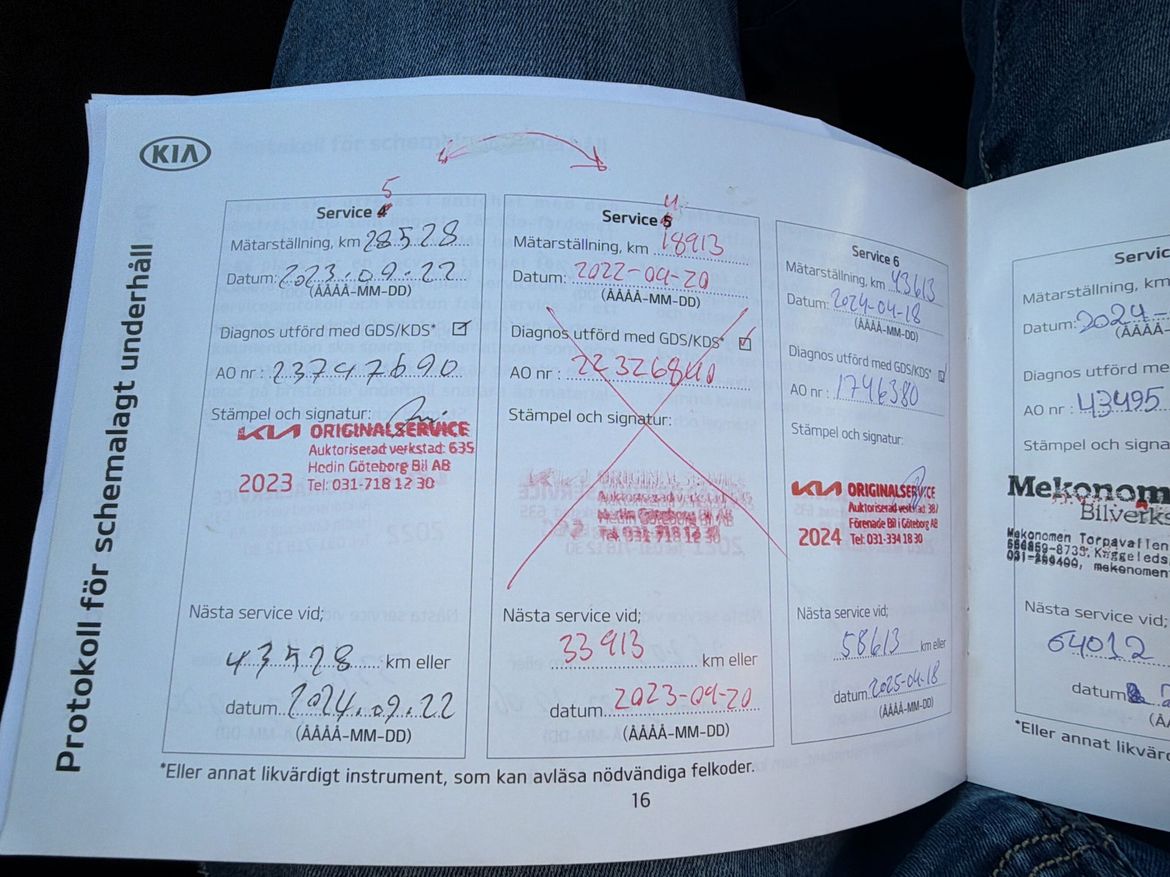 KIA
Protokoll för schemalagt underhåll
5
Service 4
Mätarställning, km 28528
Datum: 2023.09.22
(ÅÅÅÅ-MM-DD)
Diagnos utförd med GDS/KDS*
AO nr: 23747690
Stämpel och signatur:
KIA ORIGINALSERVICE
Auktoriserad verkstad: 635
Hedin Göteborg Bil AB
2023 Tel: 031-718 12 30
Nästa service vid;
43528 km eller
datum. 2024.09.22
(ÅÅÅÅ-MM-DD)
4
Service 5
Mätarställning, km 18913
Datum: 2022-09-20
(ÅÅÅÅ-MM-DD)
Diagnos utförd med GDS/KDS*
AO nr:
Stämpel och signatur:
Auktoriserad verkstad: 635
Hedin Göteborg Bil AB
Tel: 031-718 12 30
Nästa service vid;
33913 km eller
datum. 2023-09-20
(ÅÅÅÅ-MM-DD)
Service 6
Mätarställning, km 43613
Datum: 2024-04-18
(ÅÅÅÅ-MM-DD)
Diagnos utförd med GDS/KDS*
AO nr: 1746380
Stämpel och signatur:
KIA ORIGINALSERVICE
Auktoriserad verkstad 387
Förenade Bil i Göteborg AB
2024 Tel: 031-334 18 30
Nästa service vid;
58613 km eller
datum. 2025-04-18
(ÅÅÅÅ-MM-DD)
*Eller annat likvärdigt instrument, som kan avläsa nödvändiga felkoder.
16
Servic
Mätarställning, km
Datum: 2024-
(ÅÅÅÅ-
Diagnos utförd me
AO nr: 43495
Stämpel och signa
Mekonom
Bilverks
Mekonomen Torpavallen
031-
mekonomen
Nästa service vid;
64012
datum
(Å
*Eller annat likvärd